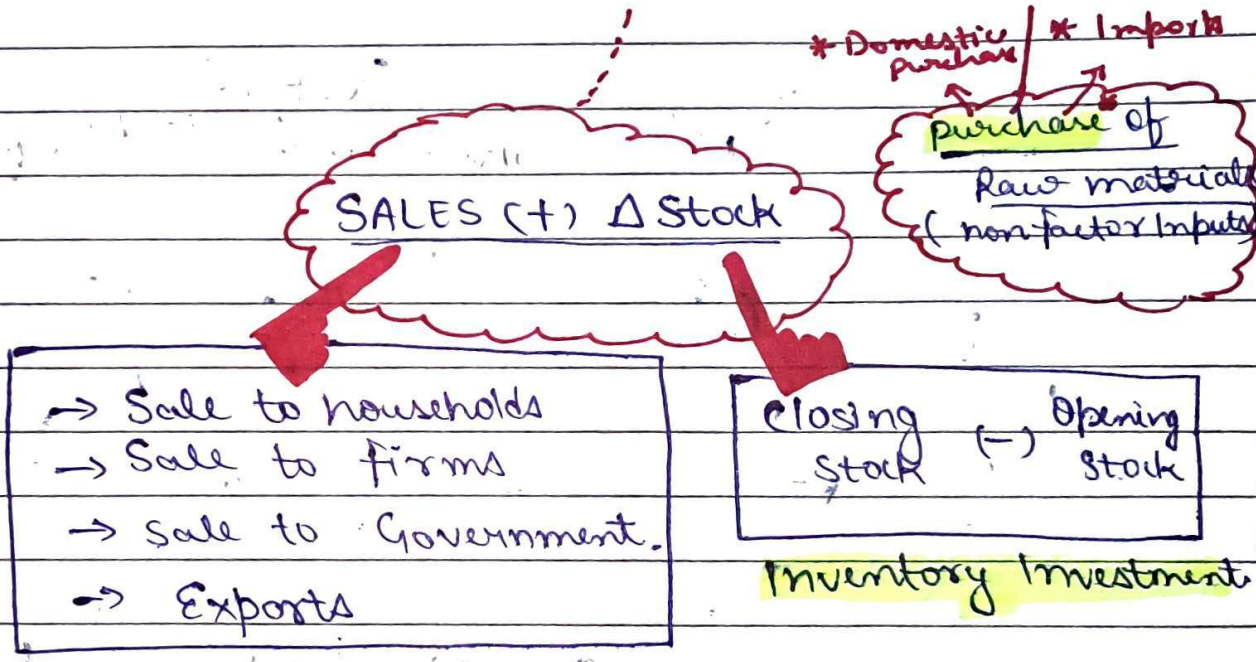 * Domestic
purchase
* Imports
purchase of
Raw materials
(non factor Inputs
SALES (+) Δ Stock
→ Sale to households
→ Sale to firms
→ Sale to Government.
→ Exports
Closing (-) Opening
Stock Stock
Inventory Investment